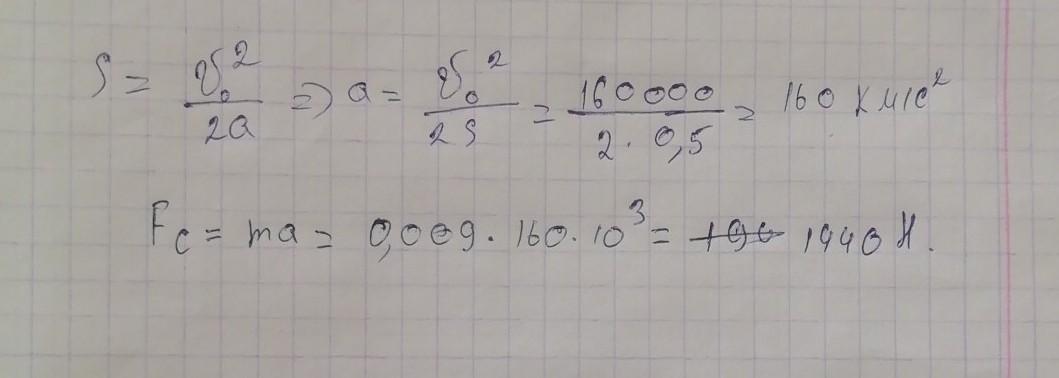 S = v₀²/2a ⇒ a = v₀²/2S = 160000/2·0,5 = 160 км/с²
Fc = ma = 0,009·160·10³ = 1440 Н.